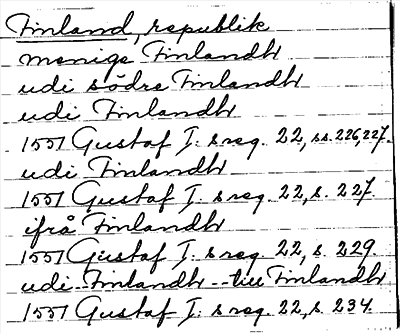 Finland, republik
menige Finlandh
udi södre Finlandh
udi Finlandh
1551 Gustaf I: s reg. 22, ss. 226, 227.
udi Finlandh
1551 Gustaf I: s reg. 22, s. 227.
ifrå Finlandh
1551 Gustaf I: s reg. 22, s. 229.
udi Finlandh -- till Finlandh
1551 Gustaf I: s reg. 22, s. 234.